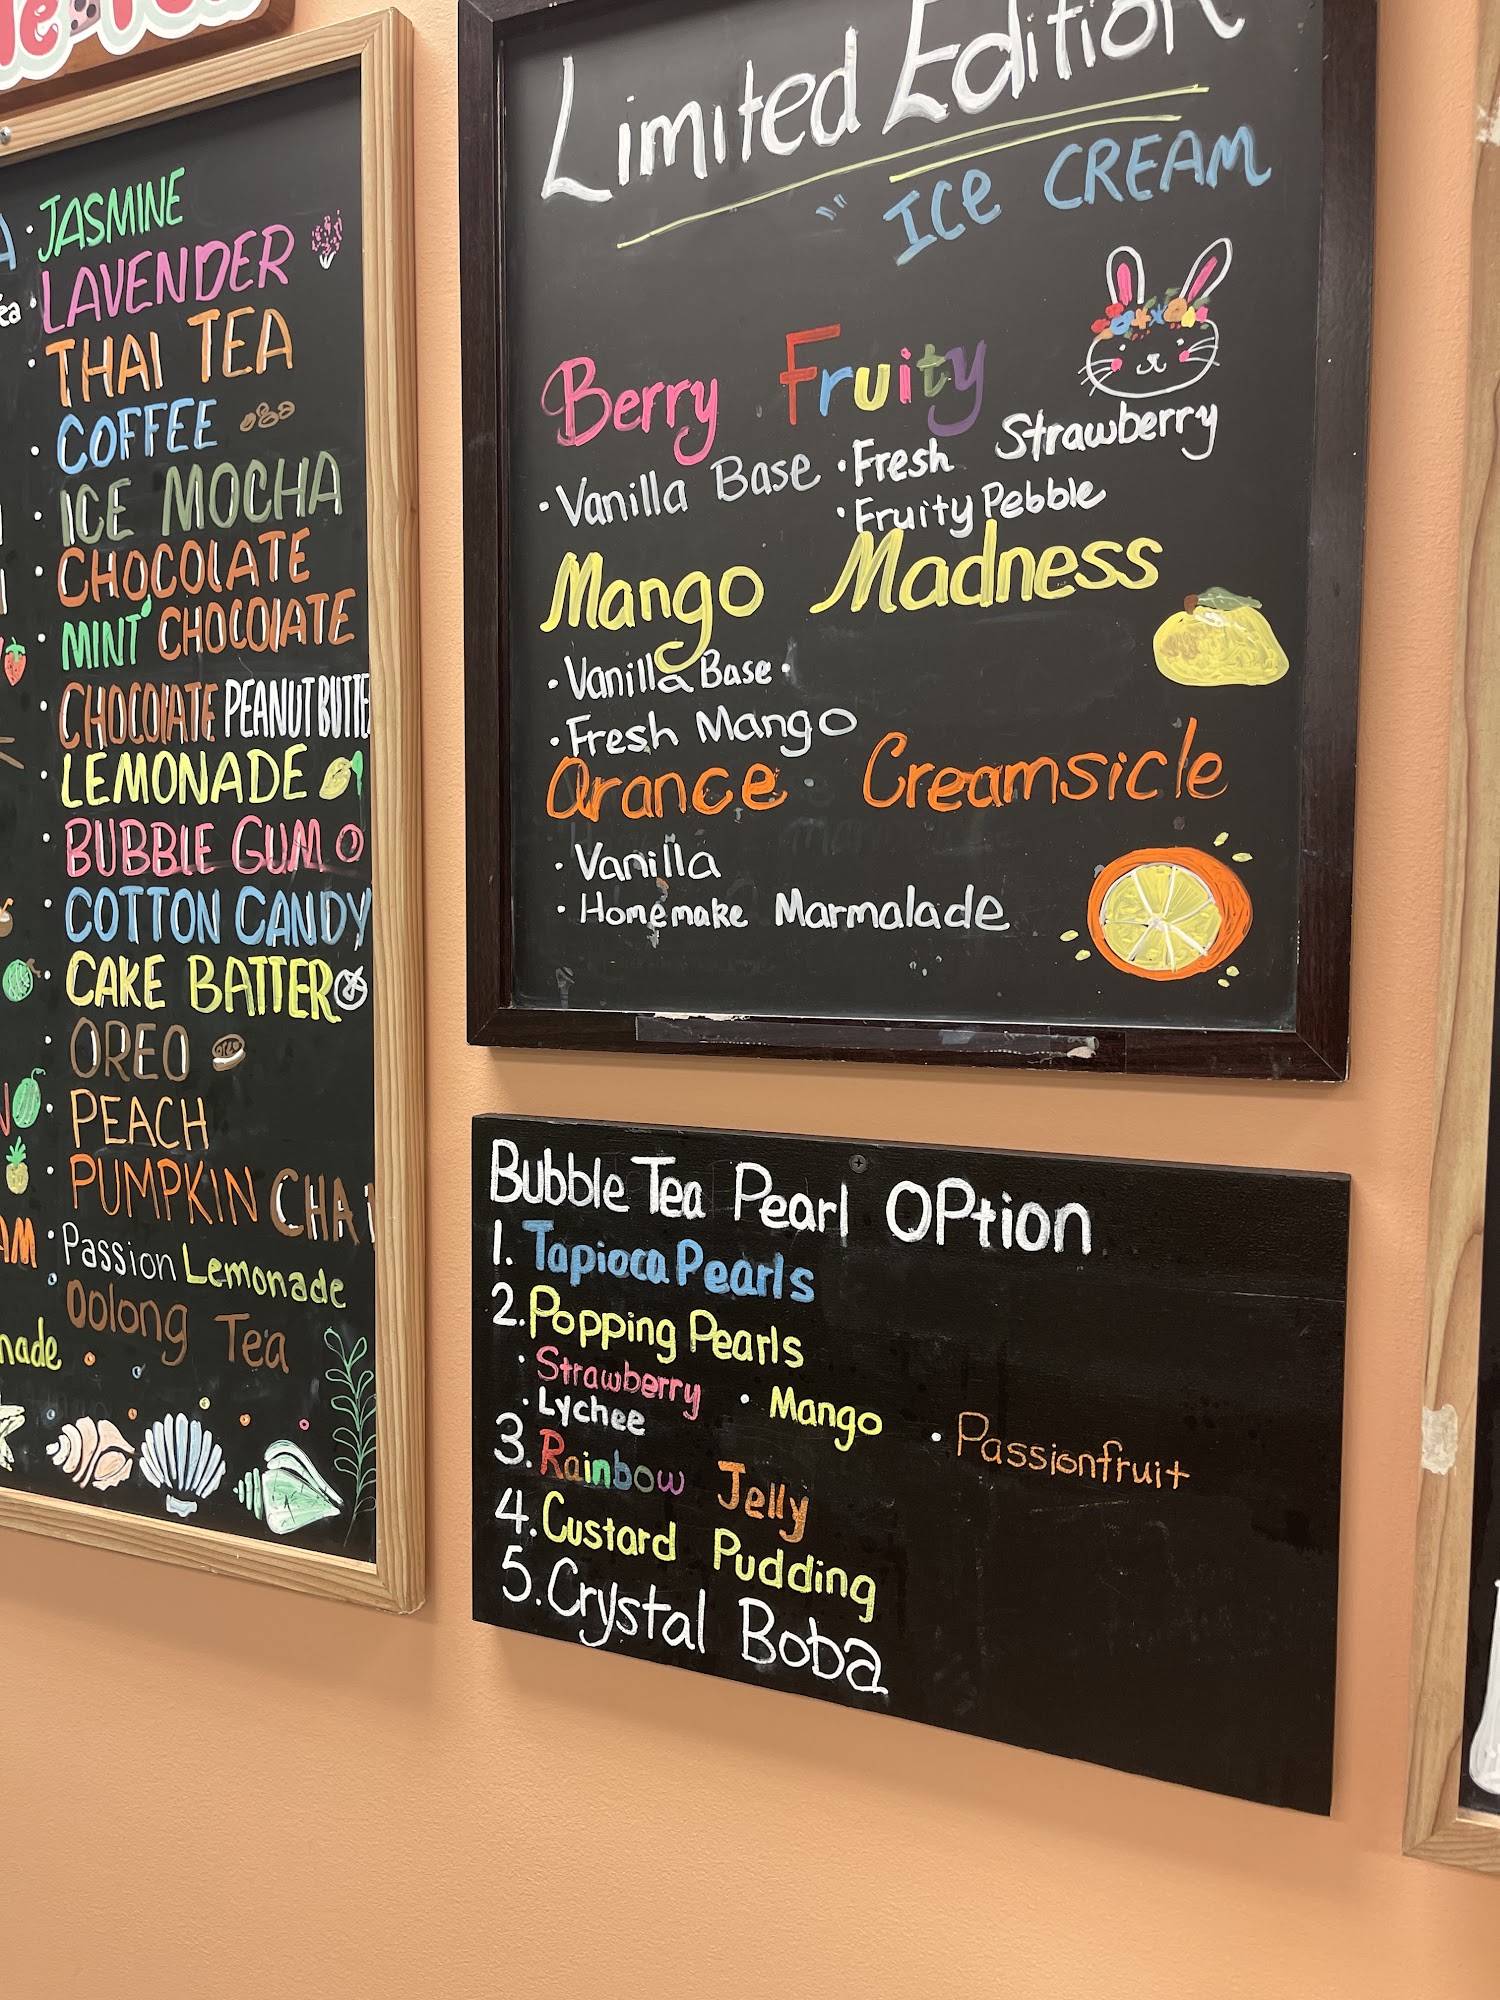 JASMINE
LAVENDER
THAI TEA
COFFEE
ICE MOCHA
CHOCOLATE
MINT CHOCOLATE
CHOCOLATE PEANUT BUTTE
LEMONADE
BUBBLE GUM
COTTON CANDY
CAKE BATTER
OREO
PEACH
PUMPKIN CHAI
Passion Lemonade
Oolong Tea
Limited Edition
ICE CREAM
Berry Fruity
· Vanilla Base · Fresh Strawberry
· Fruity Pebble
Mango Madness
· Vanilla Base ·
· Fresh Mango
Orance Creamsicle
· Vanilla
· Homemake Marmalade
Bubble Tea Pearl OPtion
1. Tapioca Pearls
2. Popping Pearls
· Strawberry · Mango · Passionfruit
· Lychee
3. Rainbow Jelly
4. Custard Pudding
5. Crystal Boba